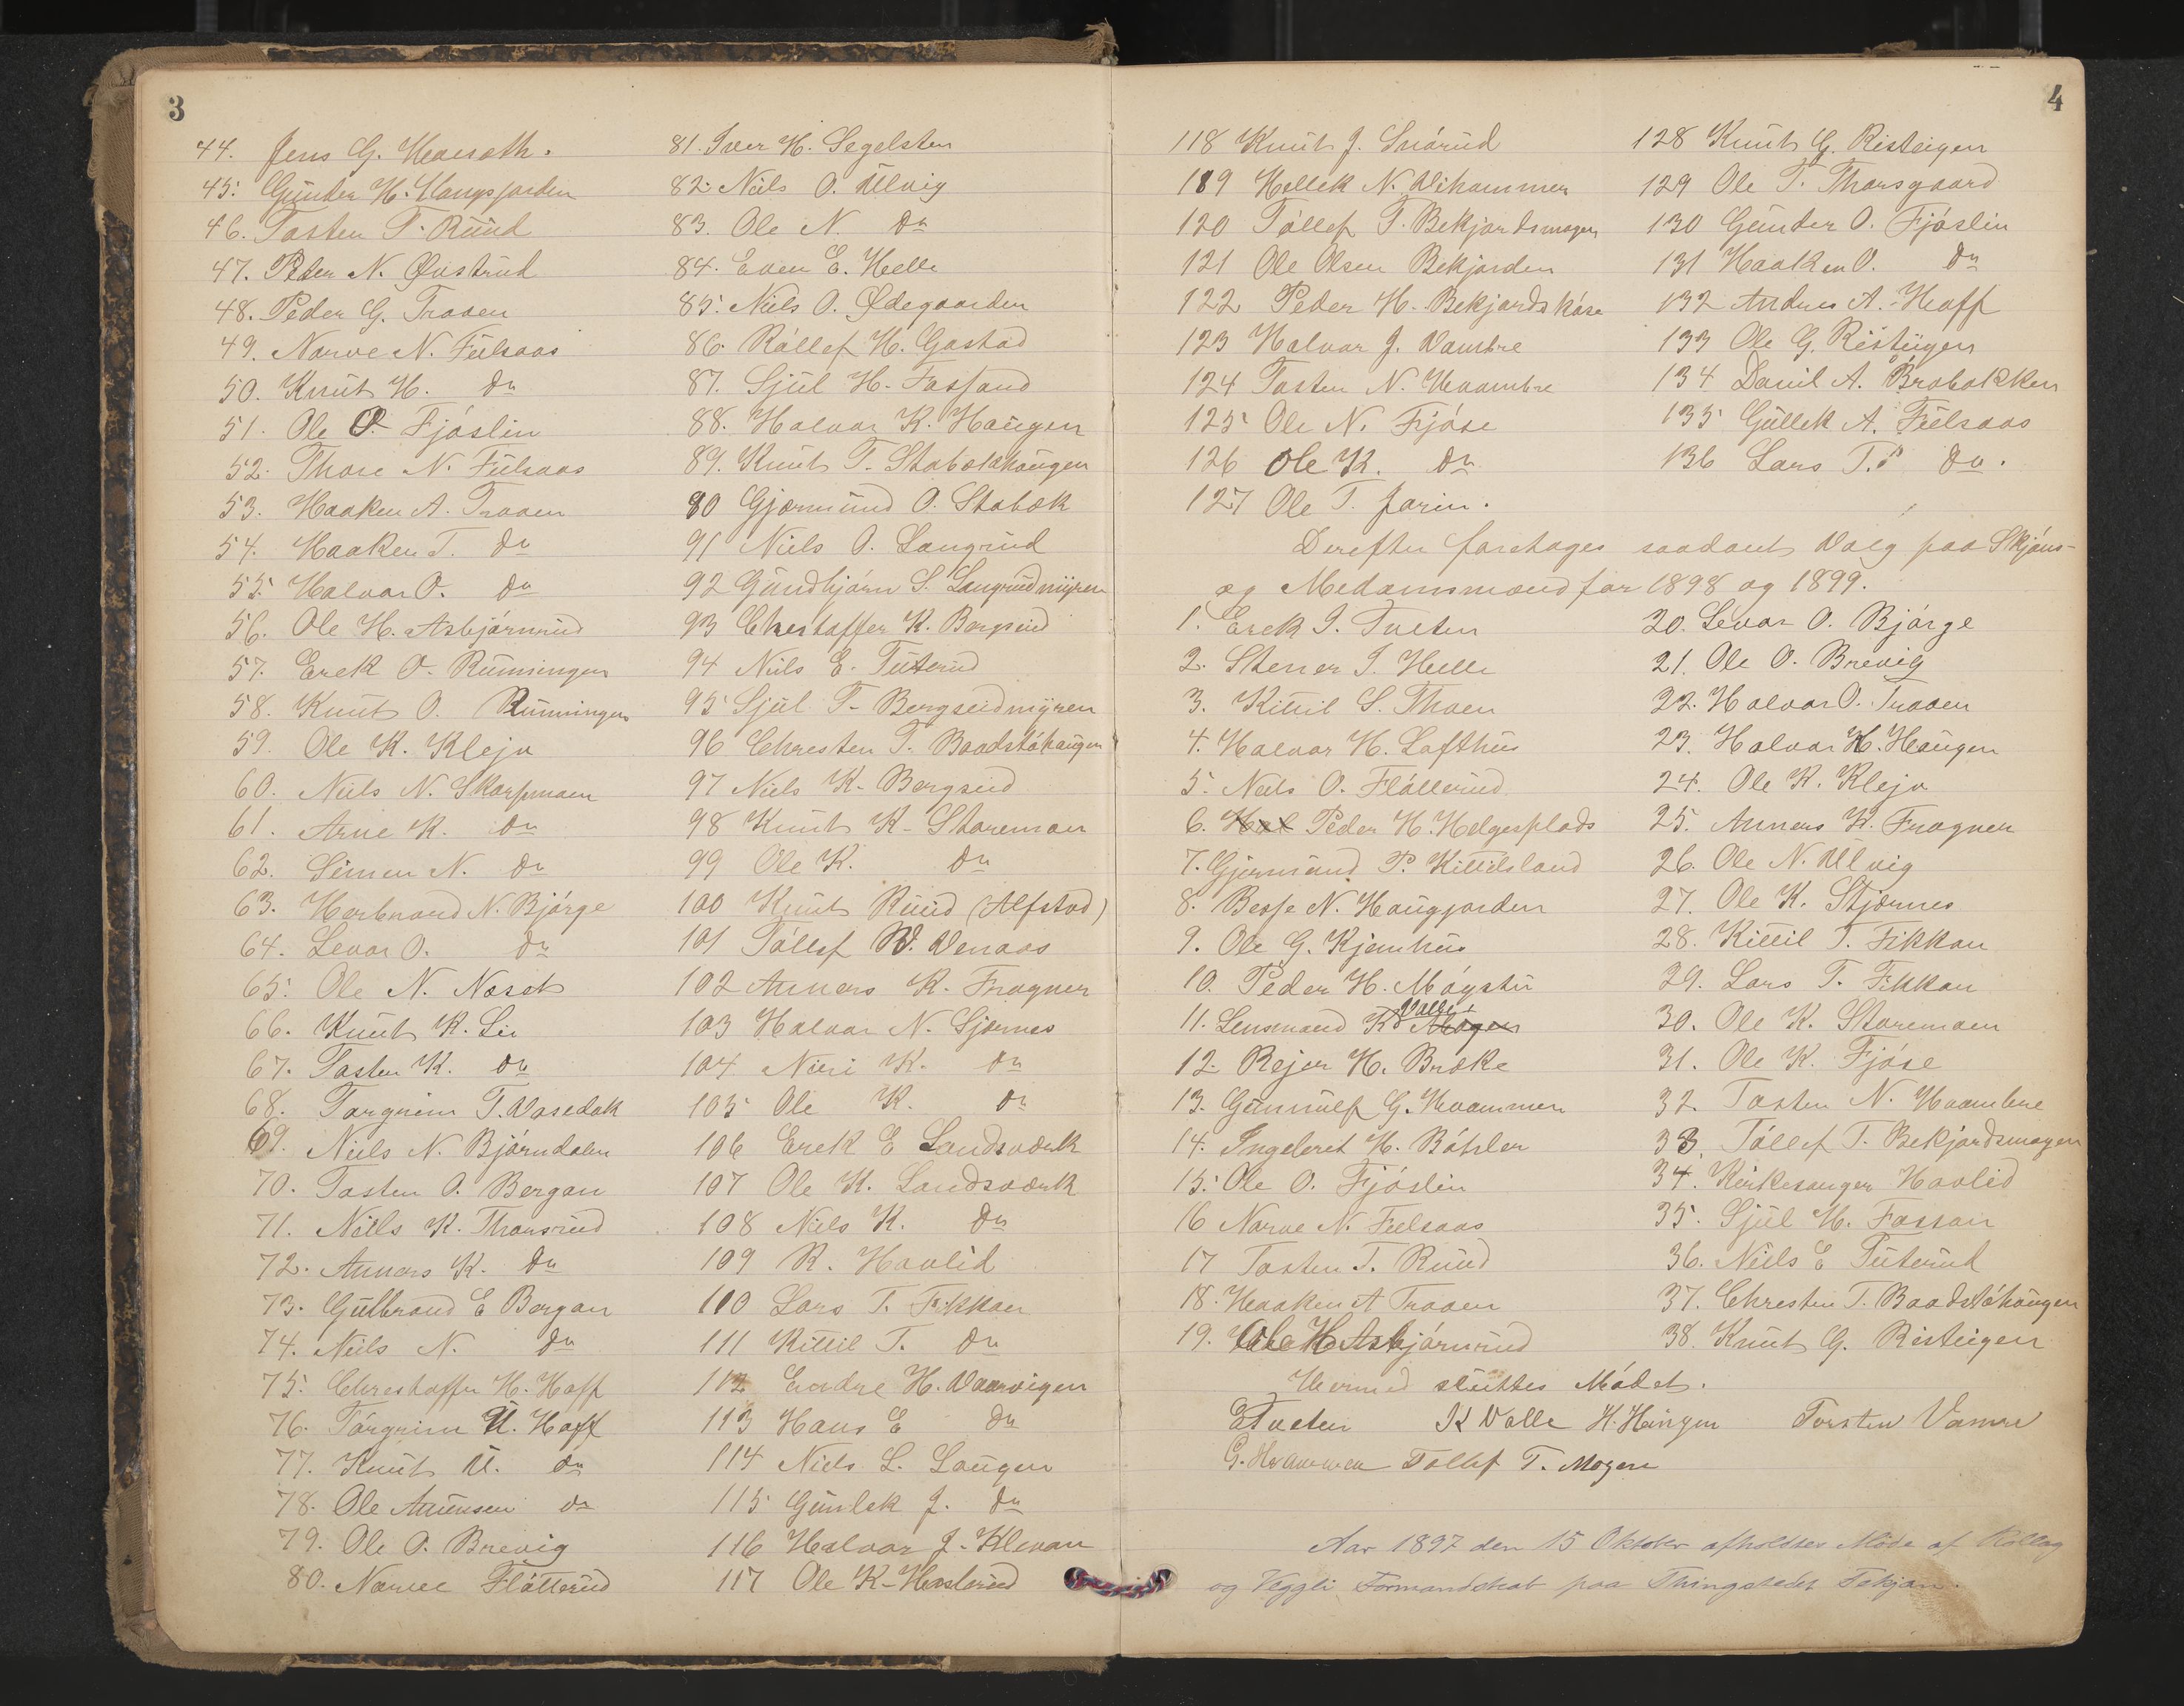 3
44. Jens G. Hvaoeth.
45. Gunder H. Haugjorden
46. Tosten T. Ruud
47. Peder N. Øvstrud
48. Peder G. Traaen
49. Narve N. Fulsaas
50. Knut H. Do
51. Ole O. Fjöslin
52. Thore N. Fulsaas
53. Haaken A. Traaen
54. Haaken T. Do
55. Halvor O. Do
56. Ole H. Asbjörnrud
57. Erek O. Runningen
58. Knut O. Runningen
59. Ole K. Klejv
60. Niels N. Skarpmoen
61. Arne K. Do
62. Simen N. Do
63. Herbrand N. Björge
64. Levor O. Do
65. Ole N. Norst
66. Knut K. Li
67. Tosten K. Do
68. Torgrim T. Vasedok
69. Niels N. Björndalen
70. Tosten O. Bergan
71. Niels K. Thorsrud
72. Anners K. Do
73. Gulbrand E Bergan
74. Niels N. Do
75. Chrestoffer H. Hoff
76. Torgrim U. Hoff
77. Knut U. Do
78. Ole Amunsen Do
79. Ole O. Brevig
80. Narve Flötterud
81. Iver H. Segelsten
82. Niels O. Ulvig
83. Ole N. Do
84. Even E. Helle
85. Niels O. Ødegaarden
86. Röllef H. Gastad
87. Sjul H. Fossand
88. Halvor K. Haugen
89. Knut T. Stabækhaugen
90 Gjermund O. Stabæk
91 Niels O. Langrud
92 Gundbjörn S. Langrudmyren
93 Chrestoffer K. Bergseid
94 Niels E. Tuterud
95 Sjul T. Bergseidmyren
96 Chresten T. Baadstöhaugen
97 Niels K. Bergseid
98 Knut K. Storemoen
99 Ole K. Do
100 Knut Ruud (Alfstad)
101 Töllef W. Venaas
102 Anners K. Frogner
103 Halvor N. Stjernes
104 Niri K. Do
105 Ole K. Do
106 Erek E Landsværk
107 Ole K. Landsværk
108 Niels K. Do
109 K. Havlid
110 Lars T. Fikkan
111 Kittil T. Do
112 Endre H. Vaarvigen
113 Hans E Do
114 Niels L. Laugen
115 Gunlek J. Do
116 Halvor J. Klevan
117 Ole K. Hvosterud
4
118 Knut J. Snörud
119 Hellek N. Vihammer
120 Töllef T. Bekjordsmogen
121 Ole Olsen Bekjorden
122 Peder H. Bekjordskåse
123 Halvor J. Vambre
124 Tosten N. Hvambre
125 Ole N. Fjöse
126 Ole K. Do
127 Ole T. Jorin.
128 Knut G. Risteigen
129 Ole T. Thorsgaard
130 Gunder O. Fjöslin
131 Haaken O. Do
132 Andres A. Hoff
133 Ole G. Risteigen
134 Daniel A. Bråbækken
135 Gullek A. Fulsaas
136 Lars T. Do.
Derefter foretoges saadant Valg paa Skjöns-
og Medomsmænd for 1898 og 1899.
1. Erek I. Tveten
2. Stener I. Helle
3. Kittil S. Thoen
4. Halvor H. Lofthus
5. Niels O. Flötterud
6. Hal Peder H. Helgesplads
7. Gjermund P. Kittilsland
8. Besse N. Haugjorden
9. Ole G. Kjemhus
10. Peder H. Möystu
11. Lensmand K Mogen Valle
12. Rejer H. Bråke
13. Gunnulf G. Hvammen
14. Ingebret H. Böhler
15. Ole O. Fjöslin
16 Narve N. Fulsaas
17 Tosten T. Ruud
18. Haaken A Traaen
19. Ole H Asbjörnrud
20. Levor O. Björge
21. Ole O. Brevig
22. Halvor O. Traaen
23. Halvor K. Haugen
24. Ole K. Klejv
25. Anners K. Frogner
26. Ole N. Ulvig
27. Ole K. Stjernes
28. Kittil T. Fikkan
29. Lars T. Fikkan
30. Ole K. Storemoen
31. Ole K. Fjöse
32. Tosten N. Hvambre
33. Töllef T. Bekjordsmogen
34. Kirkesanger Havlid
35. Sjul H. Fossan
36. Niels E Tuterud
37. Chresten T. Baadstöhaugen
38. Knut G. Risteigen
Hermed sluttes Mödet.
E Tveten K Valle H. Haugen Torsten Vamre
G. Hvammen Tollef T. Mogen
Aar 1897 den 15 Oktober afholdtes Möde af Rollag
og Veggli Formandskab paa Thingstedet Tekjan.